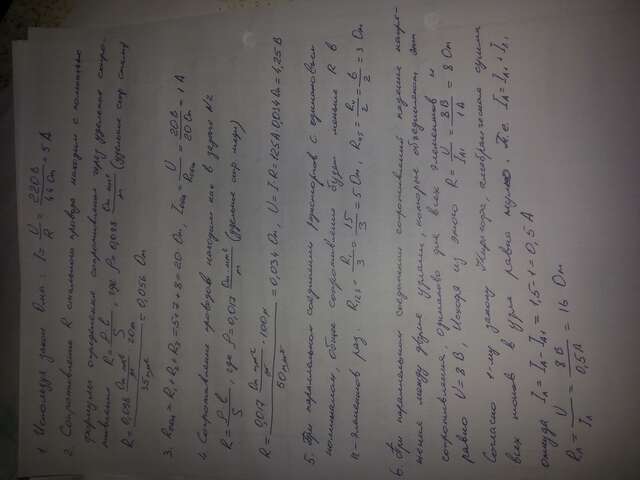 1 Используя закон Ома: I = U/R = 220 В/44 Ом = 5 А
2. Сопротивление R провода находим с помощью
формулы определения сопротивления через удельное сопро-
тивление R = ρ·l/S, где ρ = 0,028 Ом·мм²/м (удельное сопр
R = 0,028 Ом·мм²/м · 20м / = 0,056 Ом
3. Rобщ = R₁ + R₂ + R₃ = 5 + 7 + 8 = 20 Ом, Iобщ = U/Rобщ = 20 В/20 Ом = 1 А
4. Сопротивление проводов находим как в задаче №2
R = ρ·l/S, где ρ = 0,017 Ом·мм²/м (удельное сопр меди)
R = 0,017 Ом·мм²/м · 100м / 50 мм² = 0,034 Ом, U = I·R = 125А·0,034 Ом = 4,25 В
5. При параллельном соединении резисторов с одинаковым
номиналом, общее сопротивление будет меньше R в
n-элементов раз. R₁₂₃ = R₁/3 = 15/3 = 5 Ом, R₄₅ = R₄/2 = 6/2 = 3 Ом
6. При параллельном соединении сопротивлений падение напря-
жения между двумя узлами, которые объединяют эти
сопротивления, одинаково для всех элементов и
равно U = 8 В, Исходя из этого R = U/Iл₁ = 8 В/1 А = 8 Ом
Согласно 1-му закону Кирхгофа, алгебраическая сумма
всех токов в узле равна нулю. Т.е. = +
откуда = = 1,5 - 1 = 0,5 А
= U/ = 8 В/0,5 А = 16 Ом